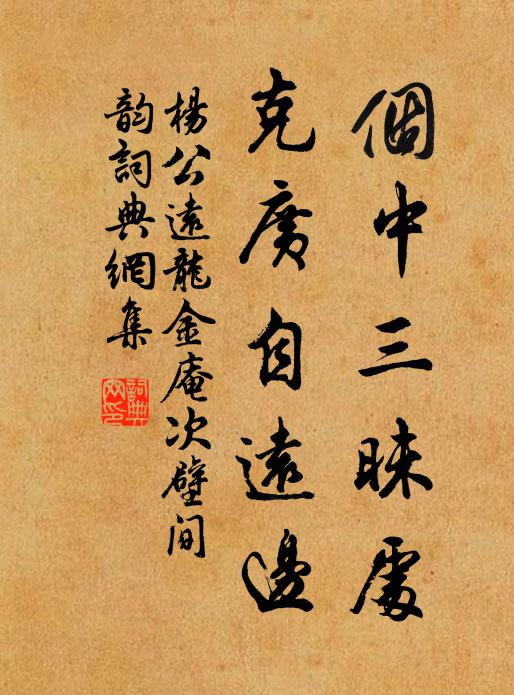 個中三昧處
克廣自遠邊
楊公遠龍金庵次壁间
韵詞典網集
詞典網印